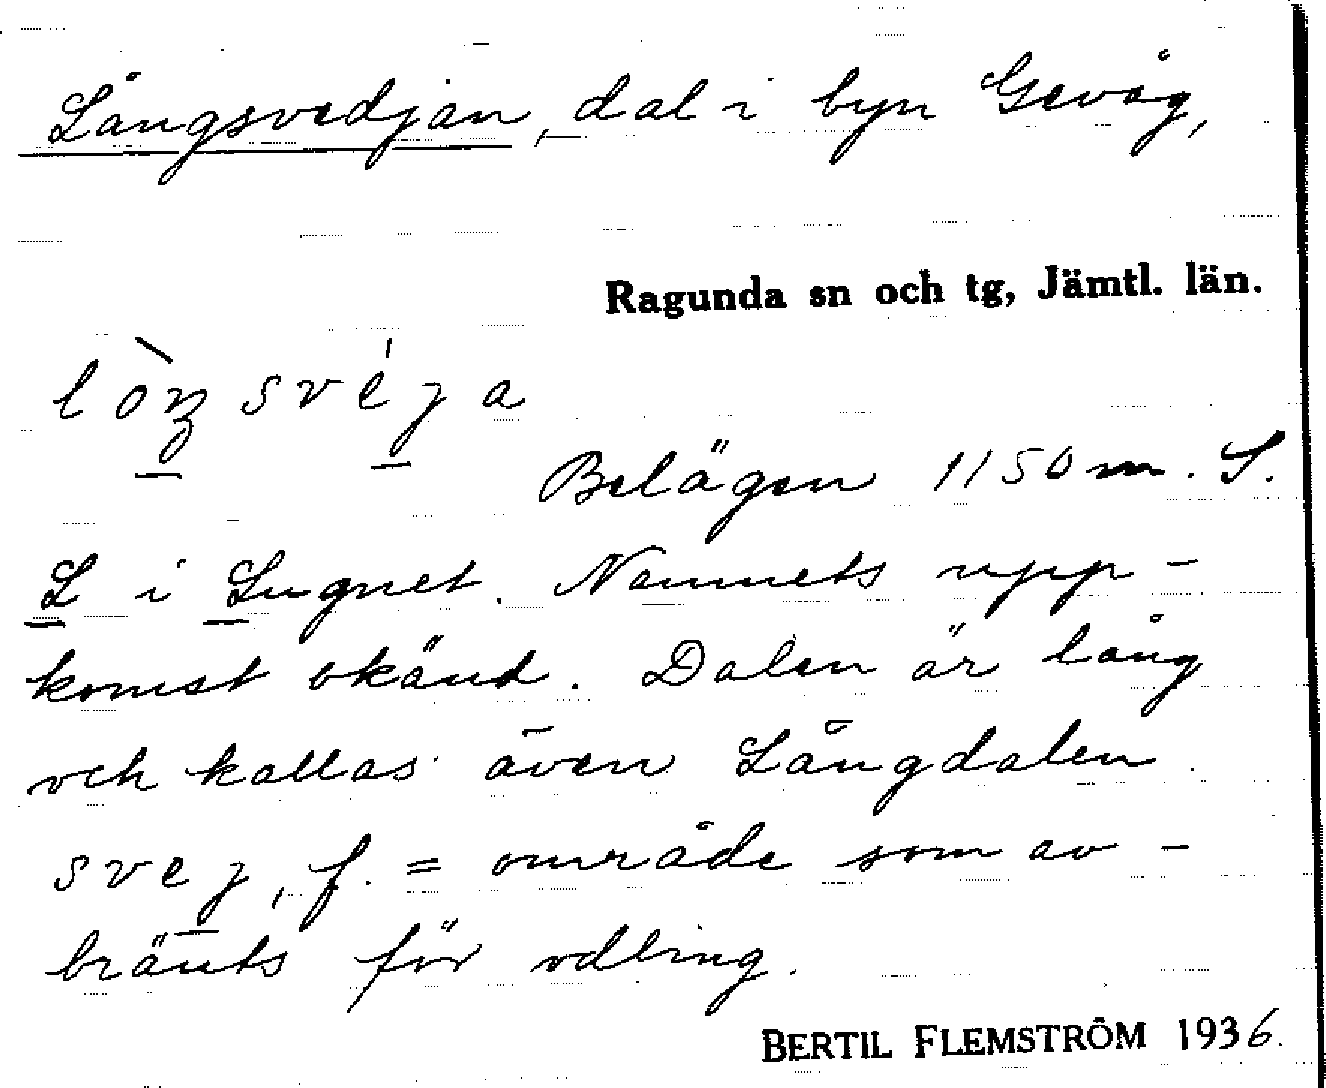 Långsvedjan, dal i byn Gevåg,
Ragunda sn och tg, Jämtl. län.
Belägen 1150 m. S.
L i Lugnet. Namnets upp-
komst okänd. Dalen är lång
och kallas även Långdalen.
svej, f. = område som av-
bränts för odling.
BERTIL FLEMSTRÖM 1936.